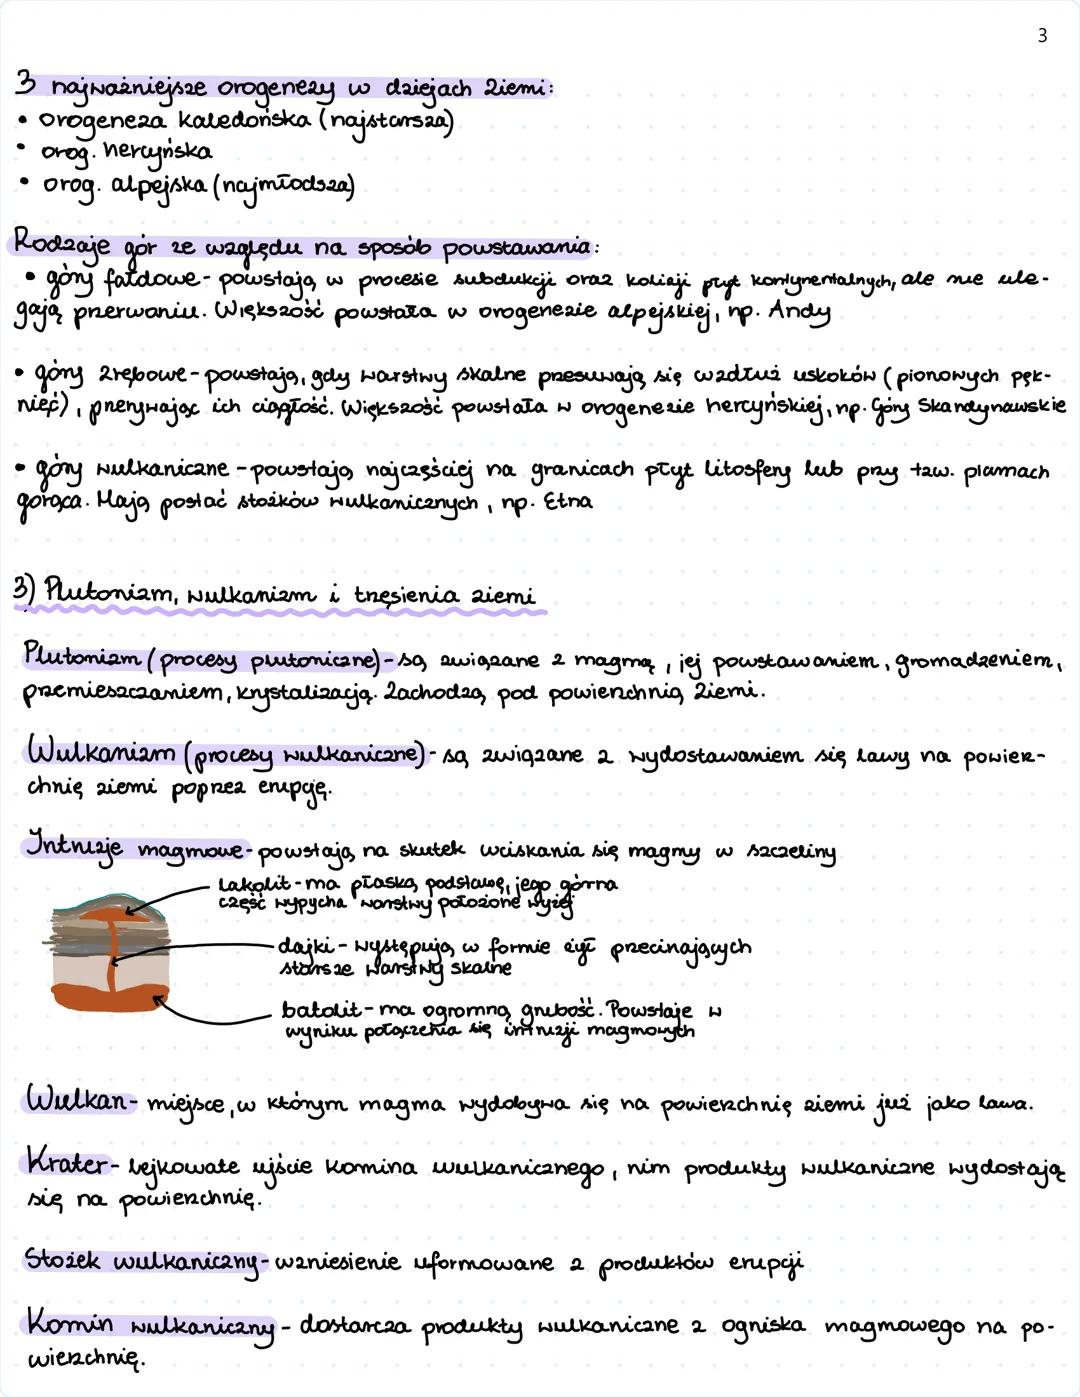 3
3 najważniejsze orogenezy w dziejach Ziemi:
• orogeneza kaledońska (najstarsza)
• orog. hercyńska
• orog. alpejska (najmłodsza)
Rodzaje gór ze względu na sposób powstawania:
• góry fałdowe - powstają w procesie subdukcji oraz kolizji płyt kontynentalnych, ale nie ule-
gają przerwaniu. Większość powstała w orogenezie alpejskiej, np. Andy
• góry zrębowe - powstają, gdy warstwy skalne przesuwają się wzdłuż uskoków (pionowych pęk-
nięć), przerywając ich ciągłość. Większość powstała w orogenezie hercyńskiej, np. Góry Skandynawskie
• góry wulkaniczne - powstają najczęściej na granicach płyt litosfery lub przy tzw. plamach
gorąca. Mają postać stożków wulkanicznych, np. Etna
3) Plutonizm, wulkanizm i trzęsienia ziemi
Plutonizm (procesy plutoniczne) - są związane z magmą, jej powstawaniem, gromadzeniem,
przemieszczaniem, krystalizacją. Zachodzą pod powierzchnią Ziemi.
Wulkanizm (procesy wulkaniczne) - są związane z wydostawaniem się lawy na powierz-
chnię ziemi poprzez erupcję.
Intruzje magmowe - powstają na skutek wciskania się magmy w szczeliny
Lakolit - ma płaską podstawę, jego górna
część wypycha warstwy położone wyżej
dajki - występują w formie żył przecinających
starsze warstwy skalne
batolit - ma ogromną grubość. Powstaje w
wyniku połączenia się intruzji magmowych
Wulkan - miejsce, w którym magma wydobywa się na powierzchnię ziemi już jako lawa.
Krater - lejkowate ujście komina wulkanicznego, nim produkty wulkaniczne wydostają
się na powierzchnię.
Stożek wulkaniczny - wzniesienie uformowane z produktów erupcji
Komin wulkaniczny - dostarcza produkty wulkaniczne z ogniska magmowego na po-
wierzchnię.